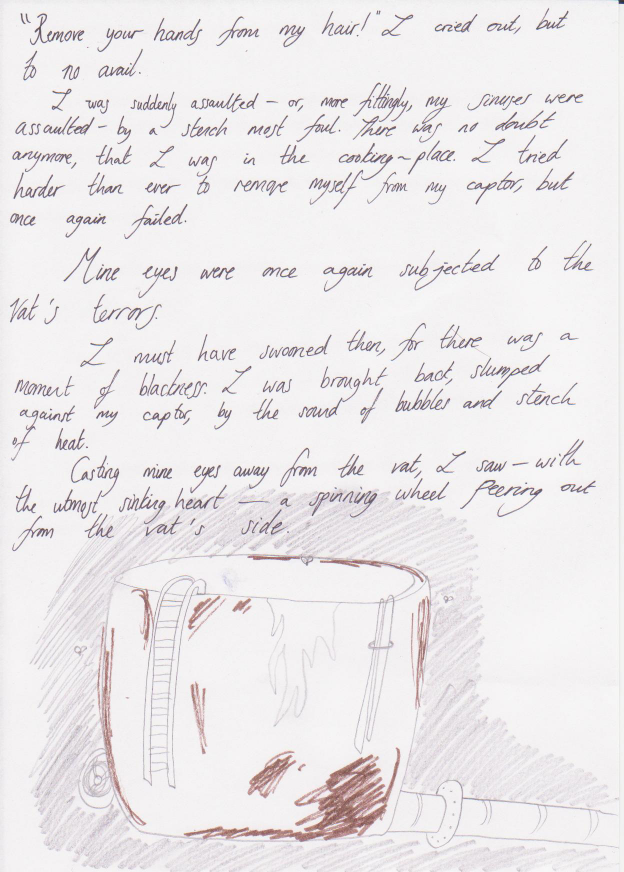 "Remove your hands from my hair!" I cried out, but
to no avail.
I was suddenly assaulted – or, more fittingly, my sinuses were
assaulted – by a stench most foul. There was no doubt
anymore, that I was in the cooking~place. I tried
harder than ever to remove myself from my captor, but
once again failed.
Mine eyes were once again subjected to the
Vat's terrors.
I must have swooned then, for there was a
moment of blackness. I was brought back, slumped
against my captor, by the sound of bubbles and stench
of heat.
Casting mine eyes away from the vat, I saw – with
the utmost sinking heart – a spinning wheel peering out
from the vat's side.